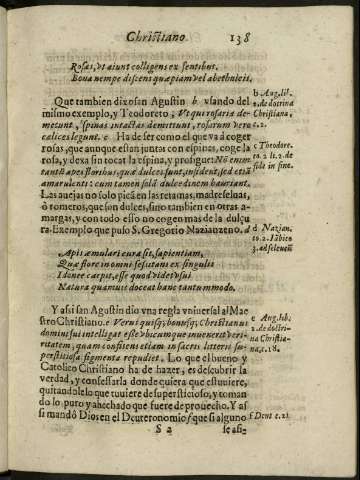 Christiano 138
Rosas, vt aiunt colligens ex sentibus.
Boua nempe discens quæpiam vel ab ethnicis.
Que tambien dixo san Agustin b vsando del
mismo exemplo, y Teodoreto; Vt qui rosaria de-
metunt, spinas intactas demittunt, rosarum vero
calices legunt. c Ha de ser como el que va à coger
rosas, que aunque estan juntas con espinas, coge la
rosa, y dexa sin tocat la espina, y prosigue: Nõ enim
tantũ apes floribus, quæ dulces sunt, insident, sed etiã
amarulenti: cum tamen solã dulcedinem hauriant.
Las auejas no solo picã en las retamas, madreseluas,
ò romeros, que son dulces, sino tambien en otras a-
margas, y con todo esso no cogen mas de la dulçu
ra. Exemplo que puso S. Gregorio Nazianzeno. d
b Aug. lib.
2. de doctrina
Christiana,
c. 2.
c Teodore.
to. 2. li. 2. de
fide in fine.
d Nazian.
to. 2. Iãbico
3. ad seleucũ
Apis æmulari cura sit, sapientiam,
Quæ flore in omni sessitans ex singulis
Idonee carpit, esse quod videt vsui
Natura quam vis doceat hanc tantummodo.
Y assi san Agustin dio vna regla vniuersal al Mae
stro Christiano. e Verus quisq; bonusq; Christianus
domini sui intelligat esse vbicumque inuenerit veri-
ritatem, quam consitens etiam in sacris litteris su-
perstitiosa figmenta repudiet. Lo que el bueno y
Catolico Christiano ha de hazer, es descubrir la
verdad, y confessarla donde quiera que estuuiere,
quitandole lo que tuuiere de supersticioso, y toman
do lo puro y ahechado que fuere de prouecho. Y as
si mandò Dios en el Deuteronomio f que si alguno
e Aug. lib.
2. de doctri-
na Christia-
na, c. 18.
f Deut c. 21.
S 2 se afi-